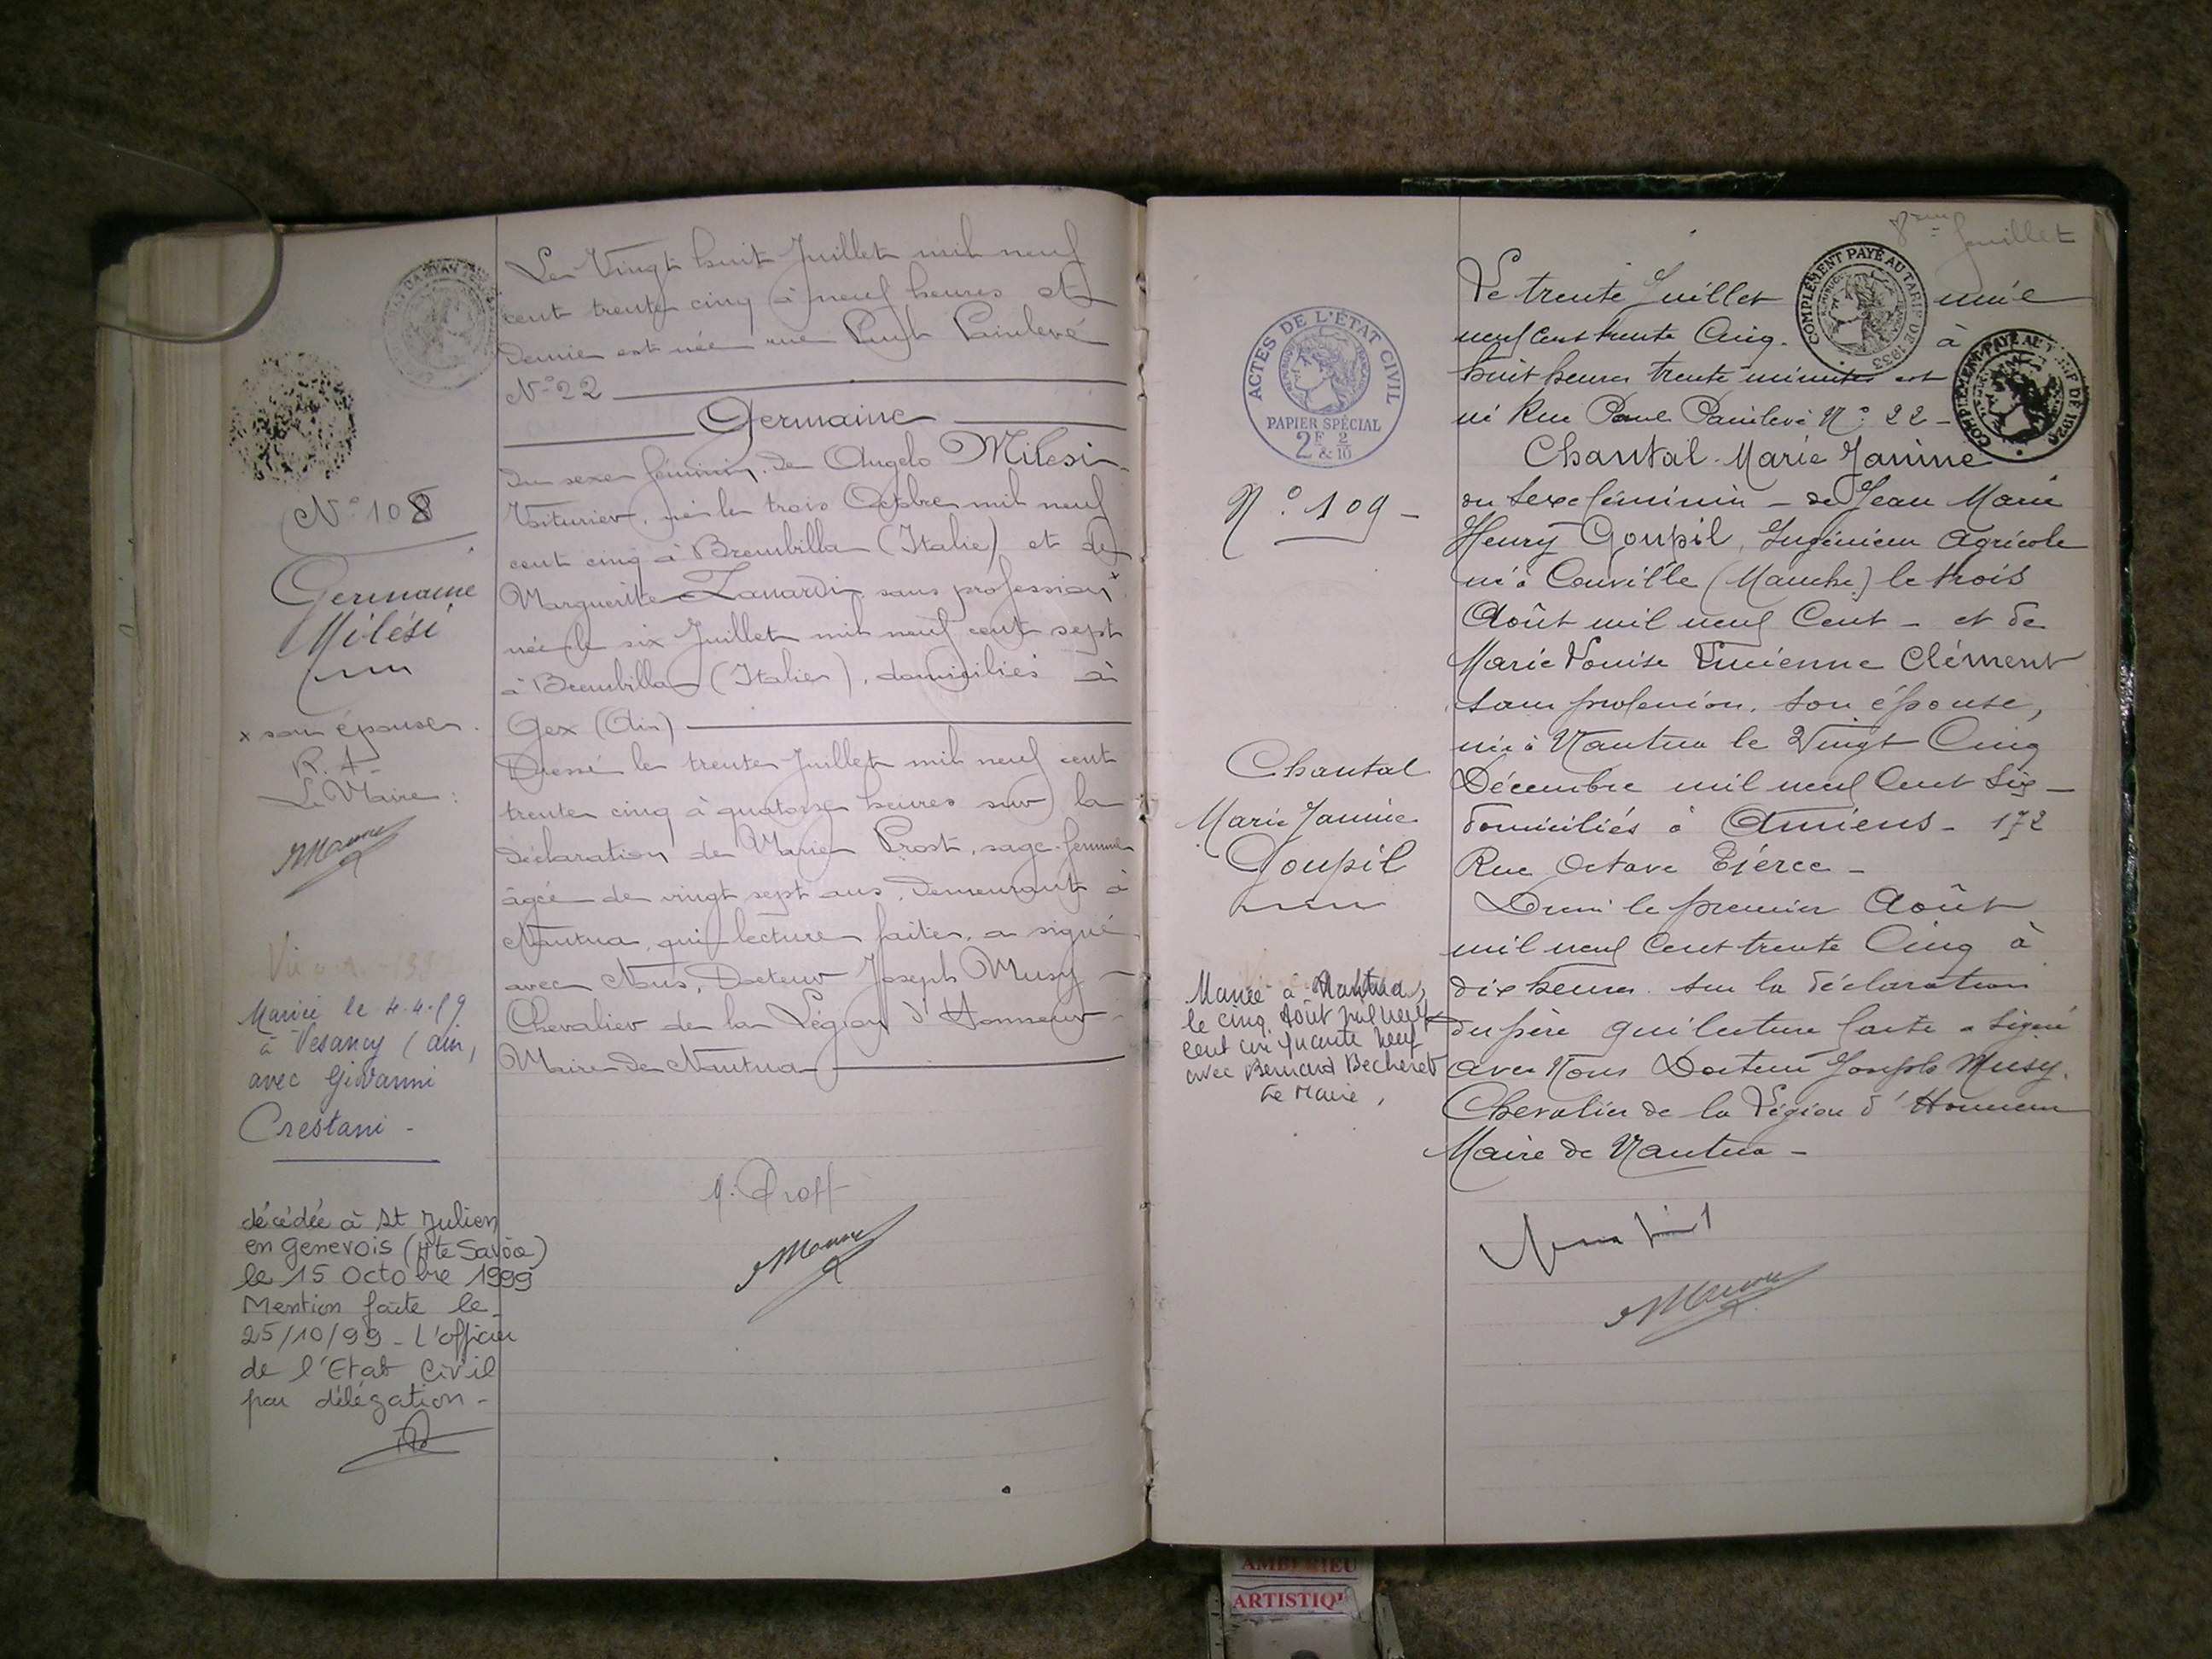 N° 108
Germaine
Milési
x son épouse.
R. A.
Le Maire :
Mariée le 4.4.59
à Vesancy (ain)
avec Giovanni
Crestani -
décédée à St Julien
en genevois (Hte Savoie)
le 15 Octobre 1999
Mention faite le
25/10/99 - L'officier
de l'Etat Civil
par délégation -
Le Vingt huit Juillet mil neuf
cent trente cinq à neuf heures et
demie est née rue Paul Painlevé
N° 22
Germaine
du sexe féminin, de Angelo Milesi
Voiturier, né le trois Octobre mil neuf
cent cinq à Brembilla (Italie) et de
Marguerite Zanardi, sans profession x
née le six Juillet mil neuf cent sept
à Brembilla (Italie), domiciliés à
Gex (Ain)
Dressé le trente Juillet mil neuf cent
trente cinq à quatorze heures sur la
déclaration de Marie Prost, sage-femme
âgée de vingt sept ans, demeurant à
Nantua, qui lecture faite, a signé
avec Nous, Docteur Joseph Musy
Chevalier de la Légion d'Honneur
Maire de Nantua
8eme feuillet
ACTES DE L'ÉTAT CIVIL
PAPIER SPÉCIAL
2F & 2/10
N° 109 -
Chantal
Marie Janine
Goupil
Mariée à Nantua,
le cinq Août mil neuf
cent cinquante neuf
avec Bernard Becheret
Le Maire,
COMPLÉMENT PAYÉ AU TARIF DE 1933
COMPLÉMENT PAYÉ AU TARIF DE 1924
Le trente Juillet mil
neuf cent trente Cinq. à
huit heures trente minutes est
né Rue Paul Painlevé N° 22 -
Chantal Marie Janine
du sexe féminin - de Jean Marie
Henry Goupil, Ingénieur Agricole
né à Couville (Manche) le trois
Août mil neuf Cent - et de
Marie Louise Lucienne Clément
sans profession, son épouse,
née à Nantua le Vingt Cinq
Décembre mil neuf Cent Six -
domiciliés à Amiens - 172
Rue Octave Tierce -
Dressé le premier Août
mil neuf Cent trente Cinq à
dix heures sur la déclaration
du père qui lecture faite a signé
avec Nous Docteur Joseph Musy.
Chevalier de la Légion d'Honneur
Maire de Nantua -
AMBERIEU
ARTISTIQ